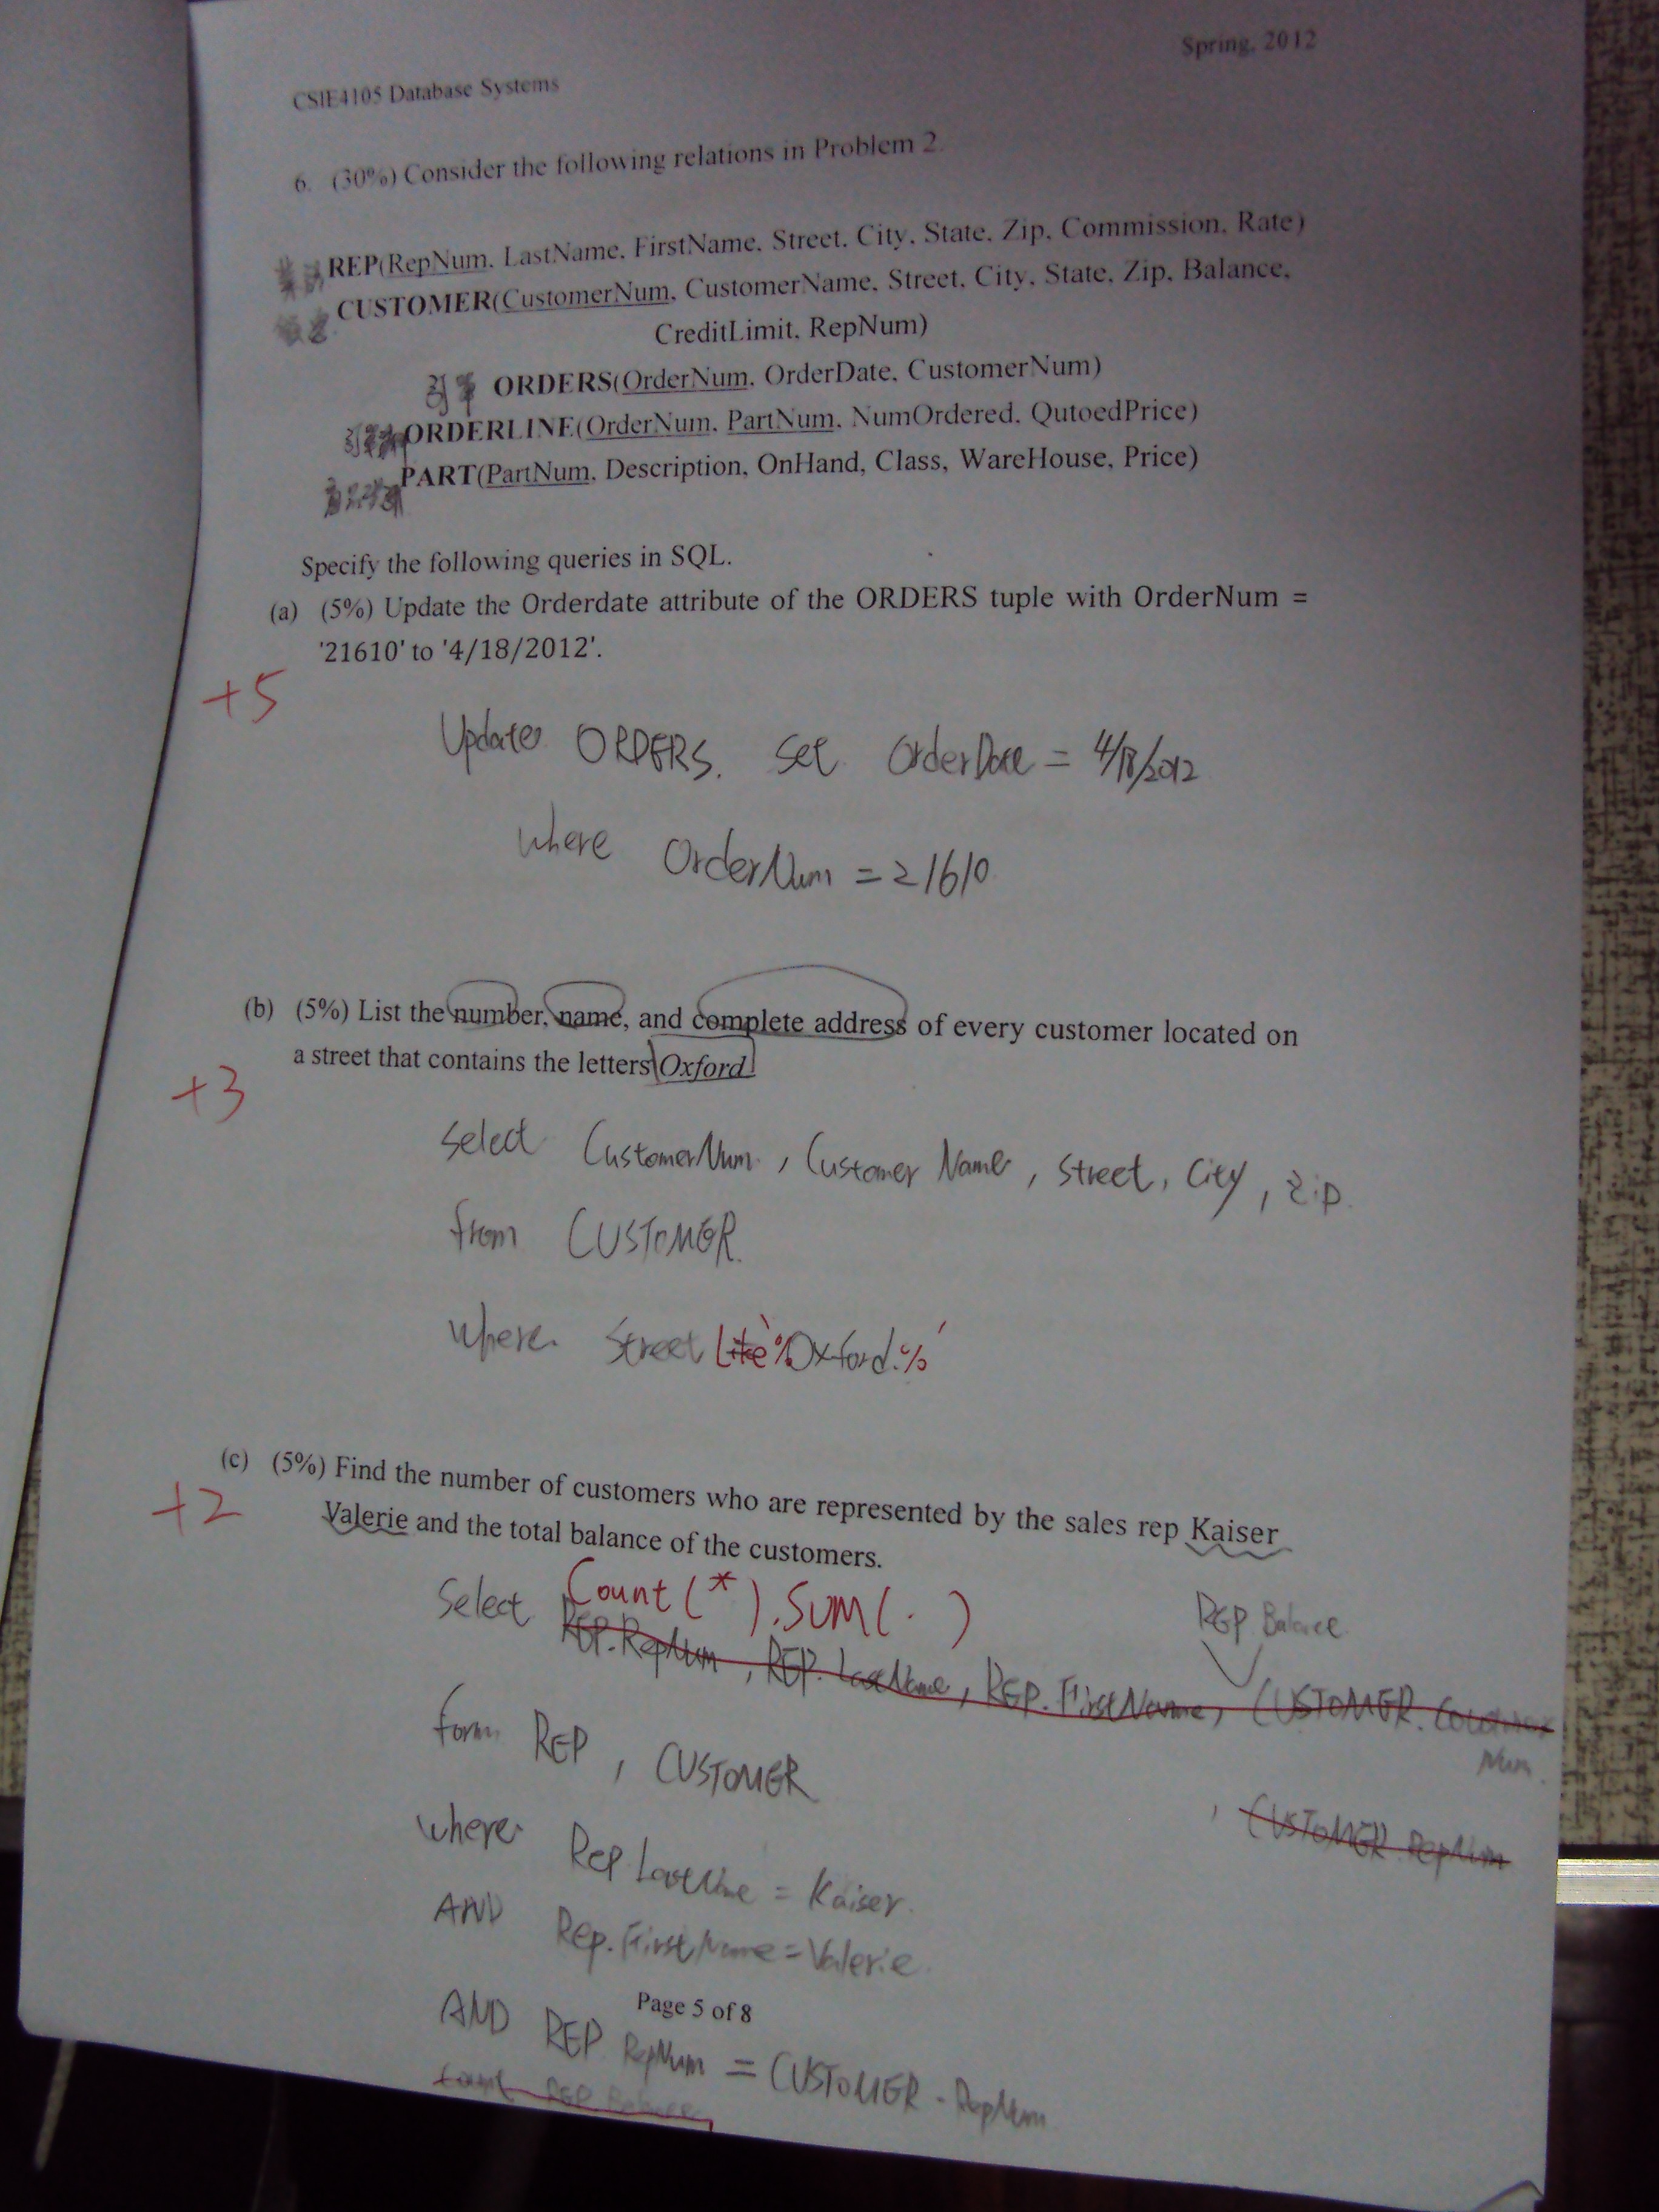 Spring, 2012
CSIE4105 Database Systems
6. (30%) Consider the following relations in Problem 2.
REP(RepNum, LastName, FirstName, Street, City, State, Zip, Commission, Rate)
CUSTOMER(CustomerNum, CustomerName, Street, City, State, Zip, Balance,
CreditLimit, RepNum)
ORDERS(OrderNum, OrderDate, CustomerNum)
ORDERLINE(OrderNum, PartNum, NumOrdered, QutoedPrice)
PART(PartNum, Description, OnHand, Class, WareHouse, Price)
Specify the following queries in SQL.
(a) (5%) Update the Orderdate attribute of the ORDERS tuple with OrderNum =
'21610' to '4/18/2012'.
+5
Update ORDERS. set OrderDate = 4/18/2012
where OrderNum = 21610
(b) (5%) List the number, name, and complete address of every customer located on
a street that contains the letters Oxford
+3
Select CustomerNum, Customer Name, Street, City, Zip.
from CUSTOMER.
where Street Like '%Oxford.%'
(c) (5%) Find the number of customers who are represented by the sales rep Kaiser
Valerie and the total balance of the customers.
+2
Select Count(*).SUM(. )
REP Balance
REP.RepNum, REP.LastName, REP.FirstName, CUSTOMER.
Num.
form REP, CUSTOMER
, CUSTOMER RepNum
where Rep LastName = Kaiser.
AND Rep.FirstName = Valerie.
Page 5 of 8
AND REP RepNum = CUSTOMER.RepNum
REP Balance